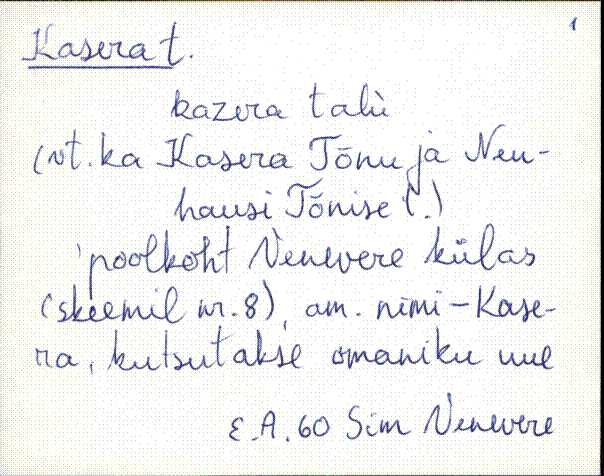 1
Kasera t.
kazera talù
(vt. ka Kasera Tõnu ja Neu-
hausi Tõnise t.)
'poolkoht Venevere külas
(skeemil nr. 8), am. nimi - Kase-
ra, kutsutakse omaniku uue
E.A. 60 Sim Venevere